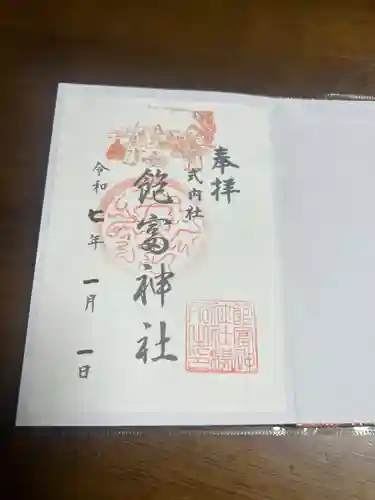 奉拝
式内社
飽富神社
令和七年一月一日